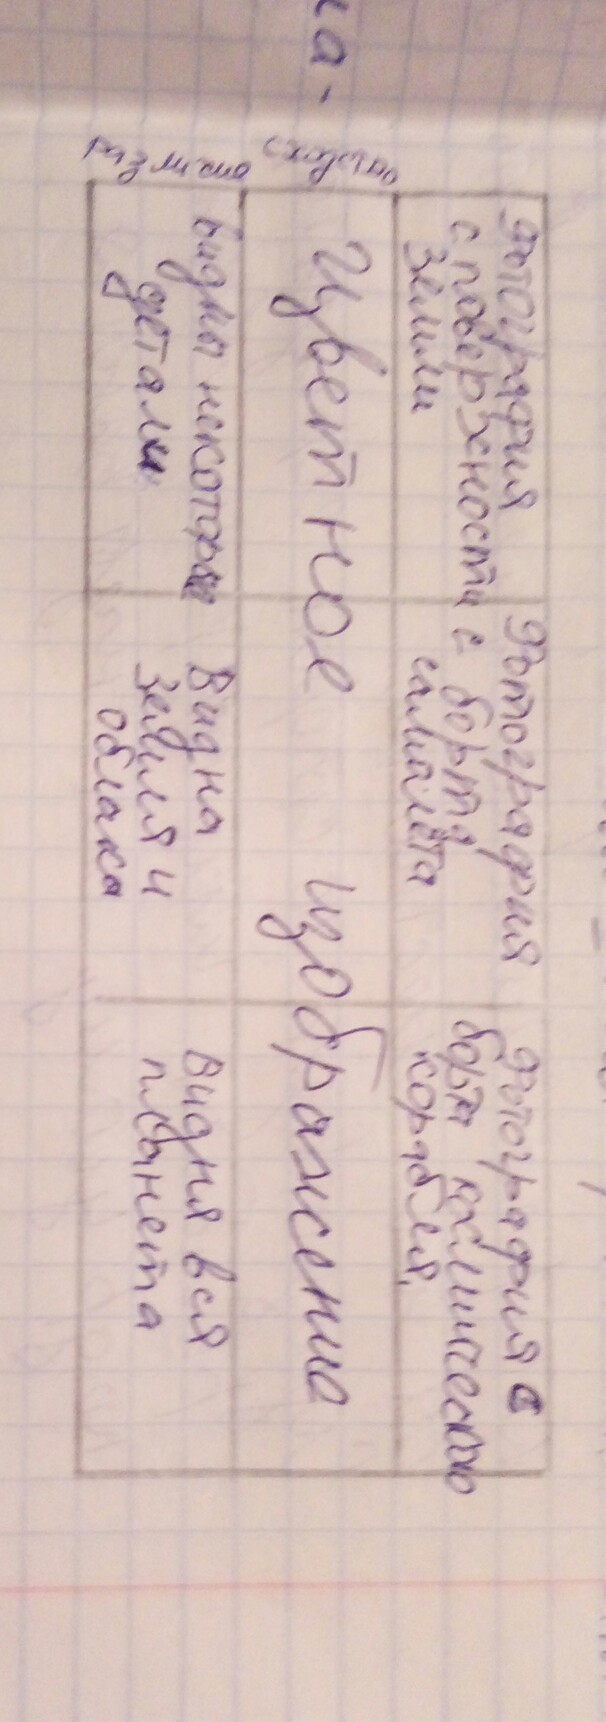 на-
Фотография
с поверхности
Земли
Фотография
с борта
самалёта
Фотография с
борта космического
корабля.
сходство
Цветное изображение
отличия
видны некоторые
детали
Видна
земля и
облака
видня вся
планета